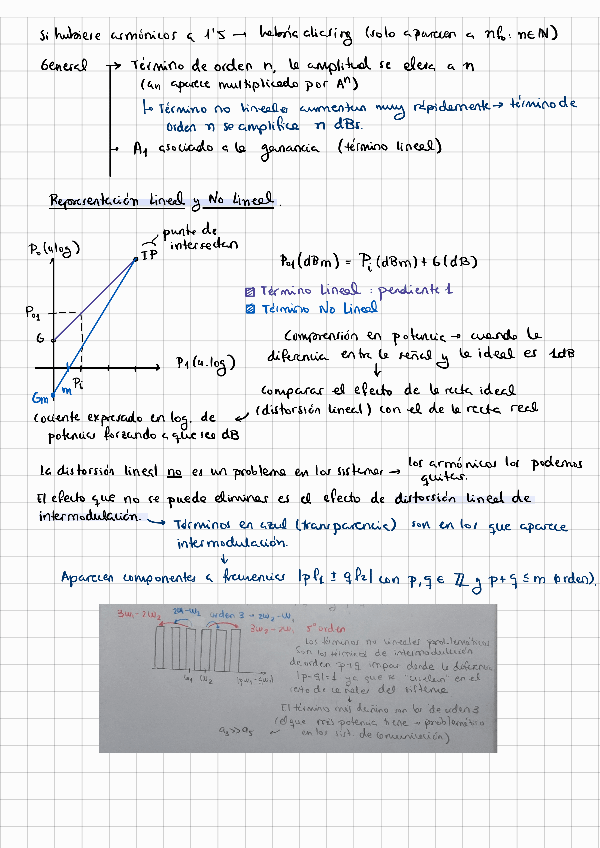 Si hubiese armónicos a 1'5 → habría aliasing (solo aparecen a nf₀: n∈ℕ)
General → Término de orden n, la amplitud se eleva a n
(an aparece multiplicado por Aⁿ)
↳ Término no lineales aumentan muy rápidamente → término de
orden n se amplifica n dBs.
→ A₁ asociado a la ganancia (término lineal)
Representación Lineal y No Lineal.
P₀ (u.log)
punto de
intersección
IP
P₀₁
G
Gm
m
Pi
P₁ (u.log)
P₀₁(dBm) = Pi (dBm) + G(dB)
Término Lineal: pendiente 1
Término No Lineal
Comprensión en potencia → cuando la
diferencia entre la señal y la ideal es 1dB
↓
comparar el efecto de la recta ideal
(distorsión lineal) con el de la recta real
cociente expresado en log. de
potencias forzando a que sea dB
La distorsión lineal no es un problema en los sistemas → los armónicos los podemos
quitar.
El efecto que no se puede eliminar es el efecto de distorsión lineal de
intermodulación. → Términos en azul (transparencia) son en los que aparece
intermodulación.
↓
Aparecen componentes a frecuencias |pf₁ ± qf₂| con p,q ∈ ℤ y p+q ≤ m (orden).
3ω₁-2ω₂ 2ω₁-ω₂ orden 3 → 2ω₂-ω₁
3ω₂-2ω₁ 5º orden
ω₁ ω₂
Los términos no lineales problemáticos
son los términos de intermodulación
de orden p+q impar donde la diferencia
|p-q|=1 ya que se "cuelan" en el
resto de canales del sistema
↓
El término más dañino son los de orden 3
(el que más potencia tiene → problemático
en los sist. de comunicación)
a₃>>a₅